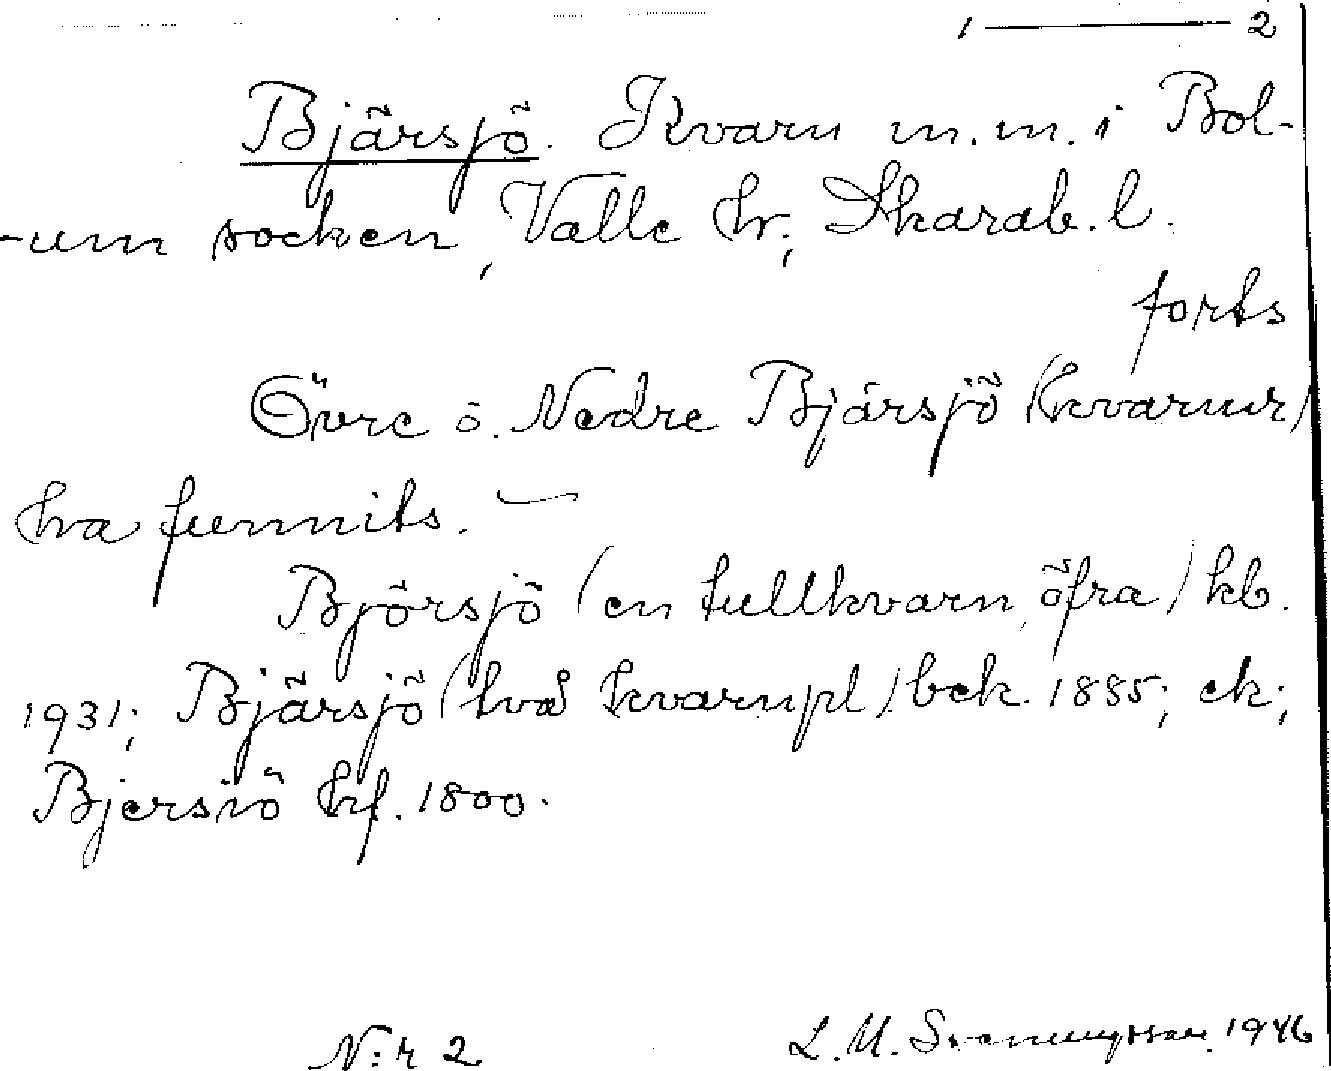 1 —— 2
Bjärsjö. Kvarn m.m. i Bol-
-um socken, Valle hr; Skarab. l.
forts
Övre o. Nedre Bjärsjö (kvarnar)
ha funnits. —
Björsjö (en tullkvarn, öfra) kb.
1931; Bjärsjö (två kvarnpl) bek. 1885; ek;
Bjersiö hf. 1800.
N:r 2
L. M. 1946